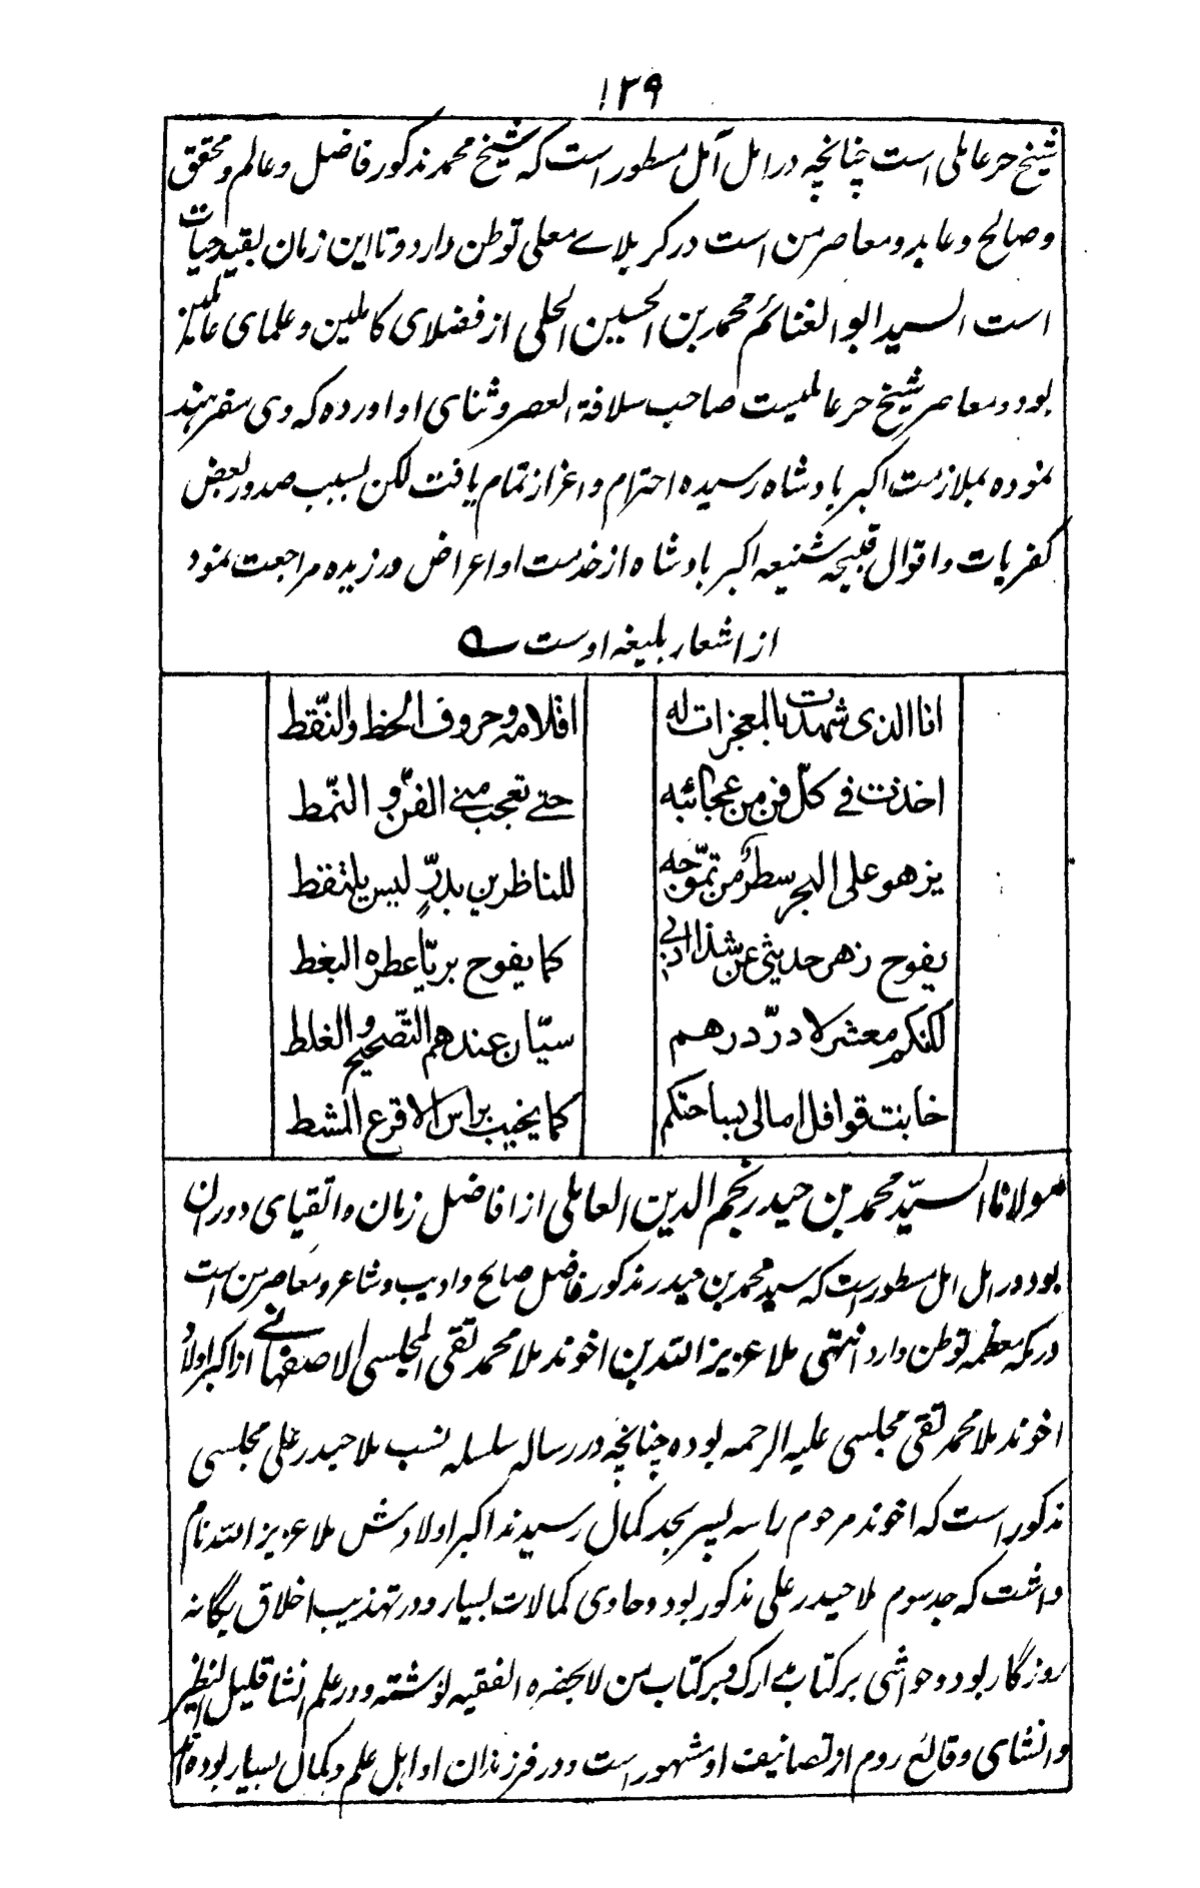 ۱۲۹
شیخ حر عاملی است چنانچه در امل آمل مسطور است که شیخ محمد مذکور فاضل و عالم و محقق
و صالح و عابد و معاصر من است در کربلاے معلی توطن دارد و تا این زمان بقید حیات
است السید ابو الغنائم محمد بن الحسین الحلی از فضلای کاملین و علمای عاملین
بود و معاصر شیخ حر عاملیست صاحب سلافة العصر و ثنای او اورده که وی سفر هند
نموده بملازمت اکبر بادشاه رسیده احترام و اعزاز تمام یافت لکن بسبب صدور بعض
کفریات و اقوال قبیحه شنیعه اکبر بادشاه از خدمت او اعراض ورزیده مراجعت نمود
از اشعار بلیغه اوست ؎
انا الذی شهدت بالمعجزات له اقلامه و حروف الخط والنّقط
اخذت فے کلّ فن من عجائبه حتے تعجب منے الفنّ و النّمط
یزهو علی البحر سطرٌ من تموّجه للناظرین بدرٍّ لیس یلتقط
یفوح زهر حدیثی عن شذا ادبے کما یفوح بریّا عطره البغط
لکنکم معشر لا درّ درهم سیّان عندهم التّصحیح و الغلط
خابت قوافل امالی بساحتکم کما یخیب براس الاقرع المشط
مولانا السیّد محمد بن حیدر نجم الدین العاملی از افاضل زمان و اتقیای دوران
بود در امل امل مسطور است که سید محمد بن حیدر مذکور فاضل صالح و ادیب و شاعر و معاصر من است
در مکه معظمه توطن دارد انتهی ملا عزیز الله بن اخوند ملا محمد تقی المجلسی الاصفهانے از اکبر اولاد
اخوند ملا محمد تقی مجلسی علیه الرحمه بوده چنانچه در رساله سلسله نسب ملا حیدر علی مجلسی
مذکور است که اخوند مرحوم را سه پسر بحد کمال رسیدند اکبر اولادش ملا عزیز الله نام
داشت که جد سوم ملا حیدر علی مذکور بود و حاوی کمالات بسیار و در تهذیب اخلاق یگانه
روزگار بود و حواشی بر کتاب مدارک و بر کتاب من لا یحضره الفقیه نوشته و در علم انشا قلیل النظیر
و انشای وقائع روم از تصانیف او مشهور است و در فرزندان او اهل علم و کمال بسیار بوده اند